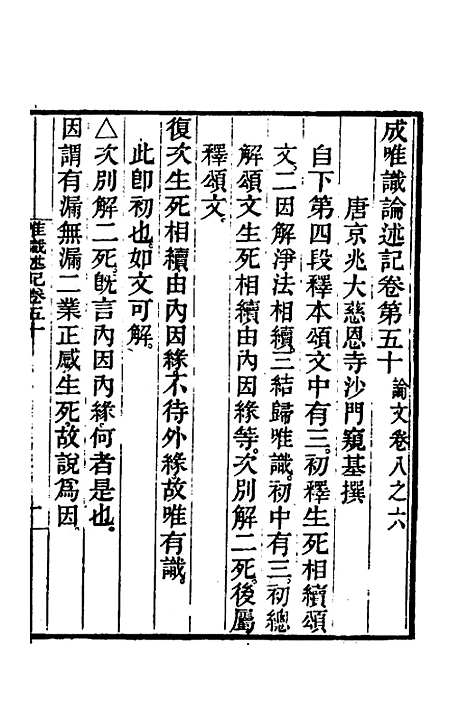 成唯識論述記卷第五十 論文卷八之六
唐京兆大慈恩寺沙門窺基撰
自下第四段釋本頌文中有三。初釋生死相續頌
文。二因解淨法相續。三結歸唯識。初中有三。初總
解頌文生死相續由內因緣等。次別解二死。後屬
釋頌文。
復次生死相續由內因緣不待外緣故唯有識。
此卽初也。如文可解。
△次別解二死。旣言內因內緣何者是也。
因謂有漏無漏二業正感生死。故說爲因。
唯識述記卷五十